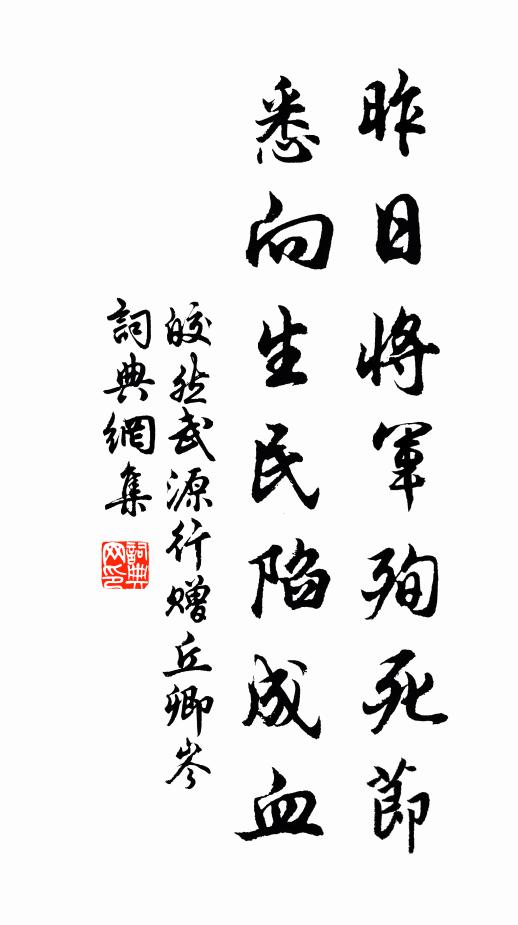 昨日將軍殉死節
悉向生民陷成血
皎然武源行贈丘卿岑
詞典網集
詞典
网印